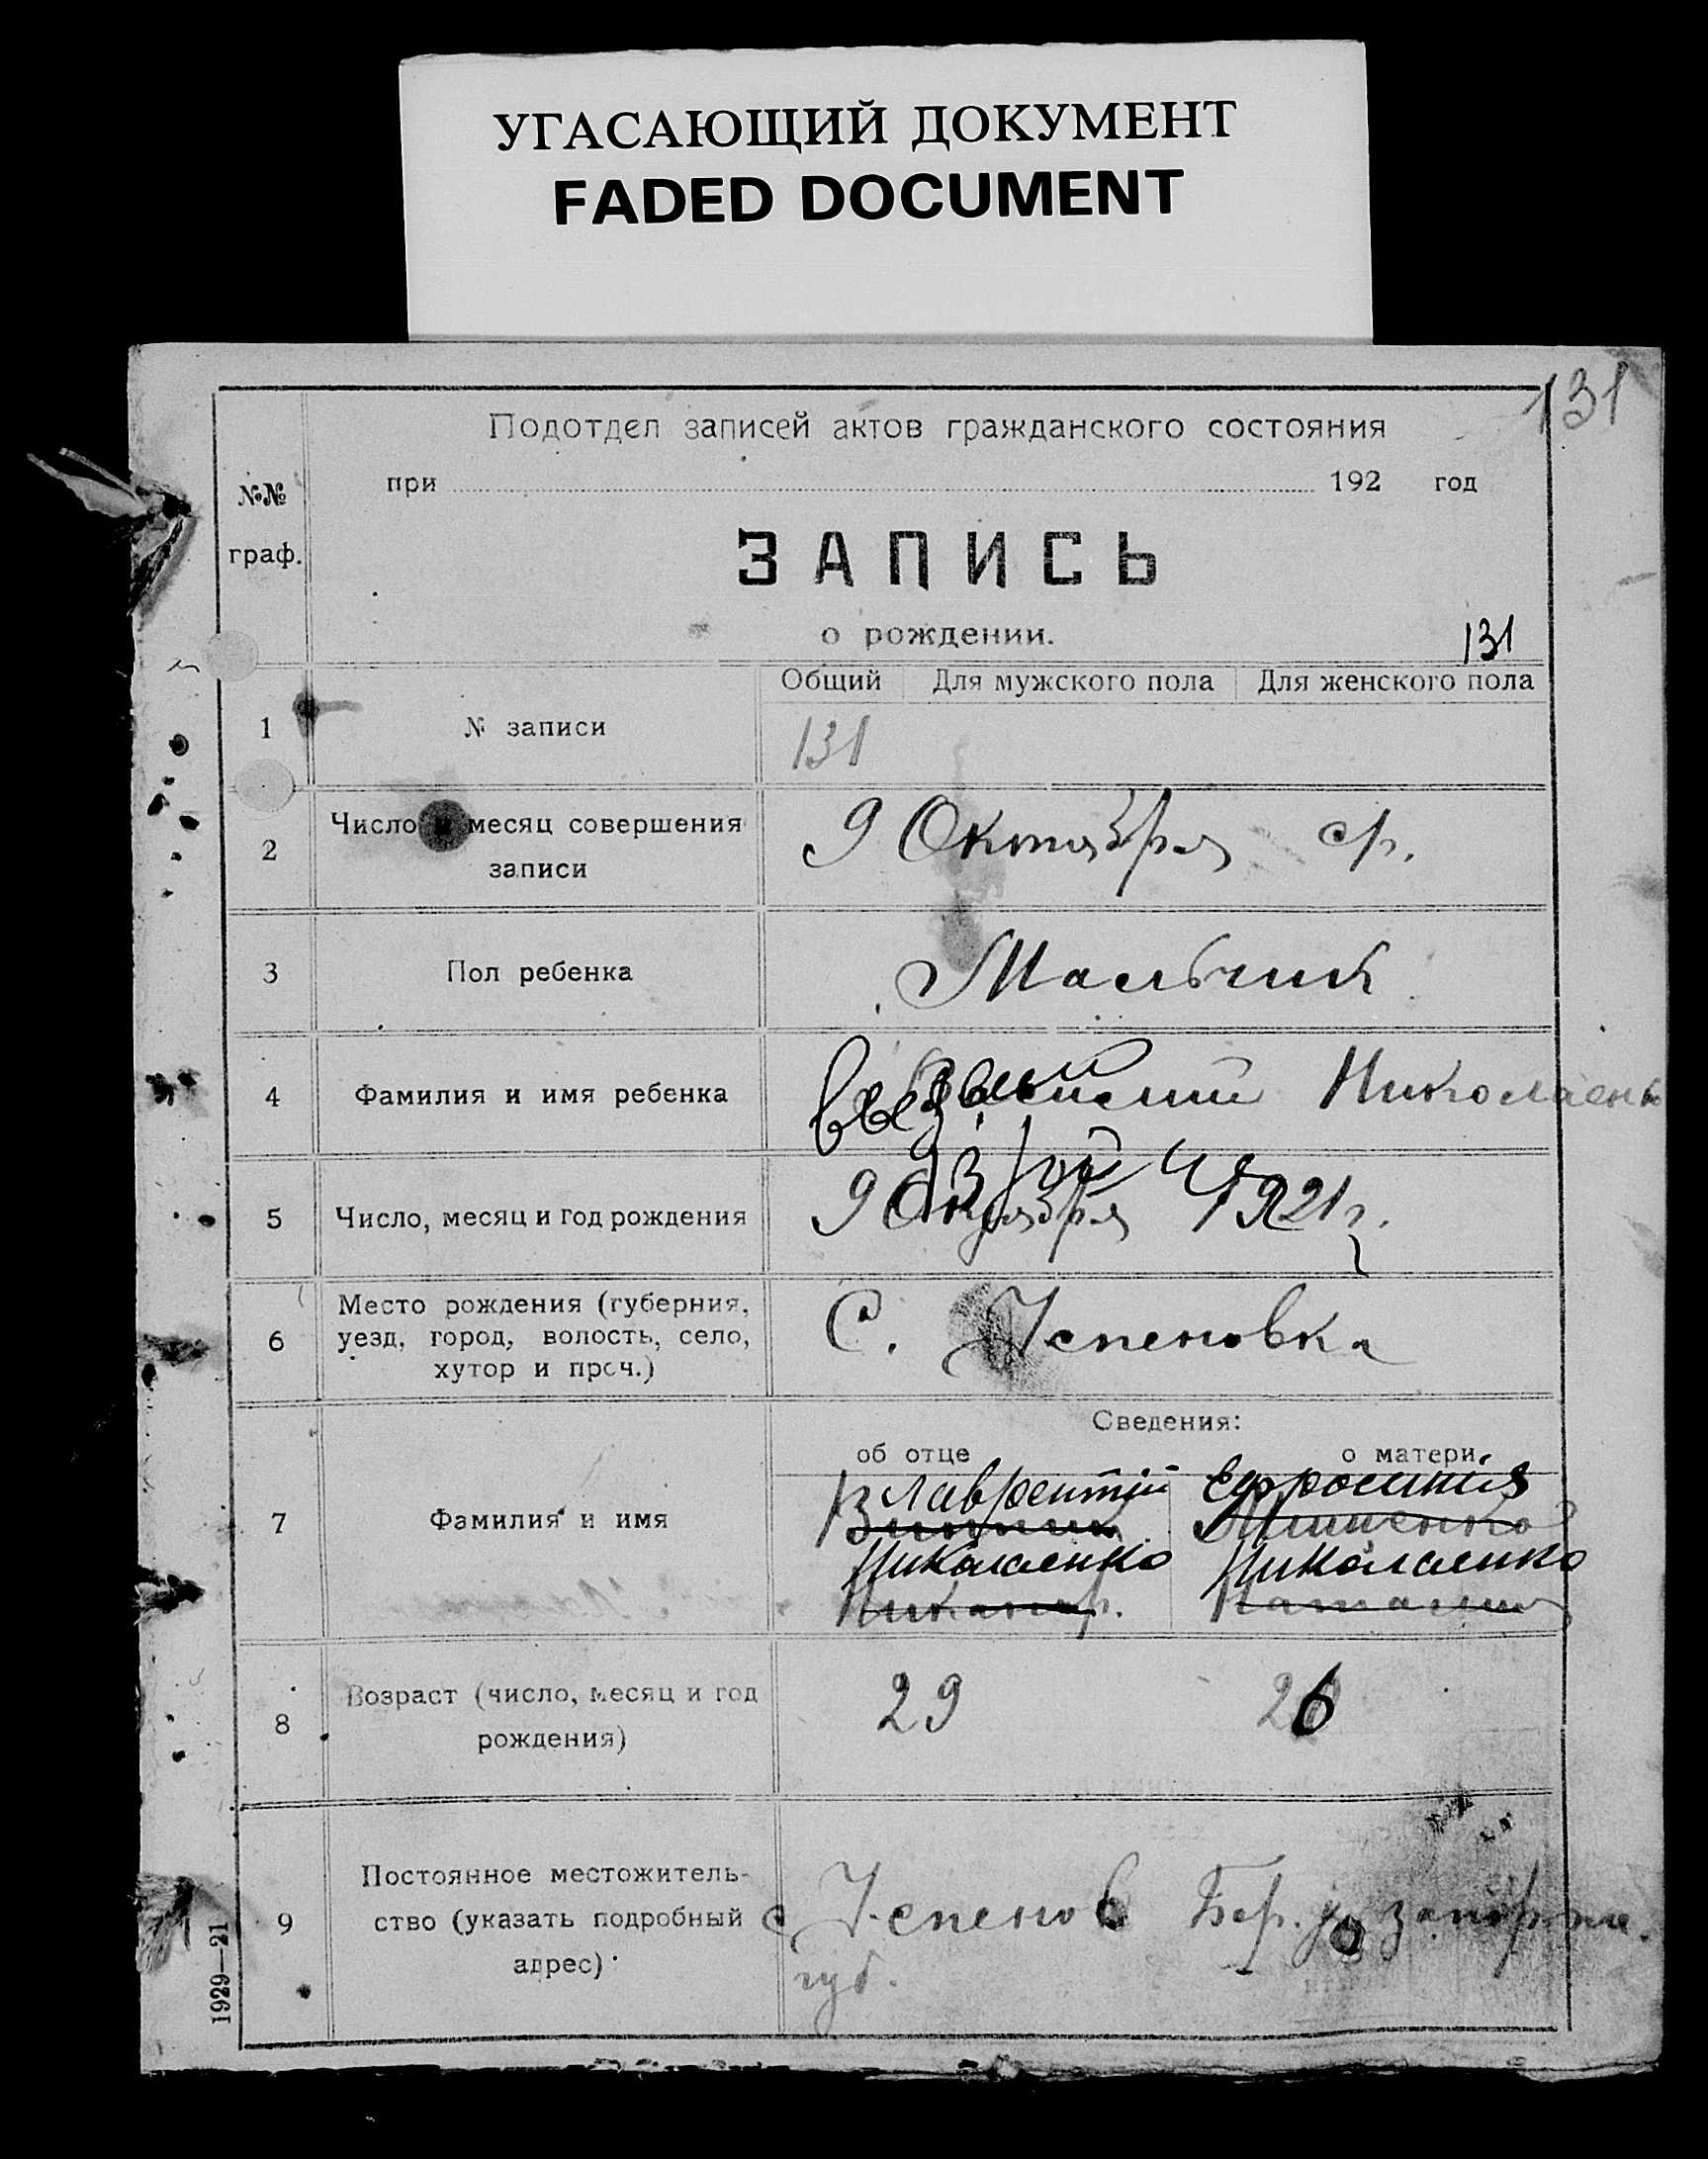 УГАСАЮЩИЙ ДОКУМЕНТ
FADED DOCUMENT
131
Подотдел записей актов гражданского состояния
при 192 год
№№
граф.
ЗАПИСЬ
о рождении.
131
Общий Для мужского пола Для женского пола
1 № записи 131
2 Число и месяц совершения
записи
9 Октября с/г.
3 Пол ребенка Мальчик
4 Фамилия и имя ребенка Николаенко
5 Число, месяц и год рождения 9 Октября 1921 г.
6 Место рождения (губерния,
уезд, город, волость, село,
хутор и проч.)
С. Успеновка
Сведения:
об отце о матери
7 Фамилия и имя
Лаврентій Ефросинія
Николаенко Николаенко
8 Возраст (число, месяц и год
рождения)
29 26
9 Постоянное местожитель-
ство (указать подробный
адрес)
с Успенов Бер. у. Запорож.
губ.
1929—21